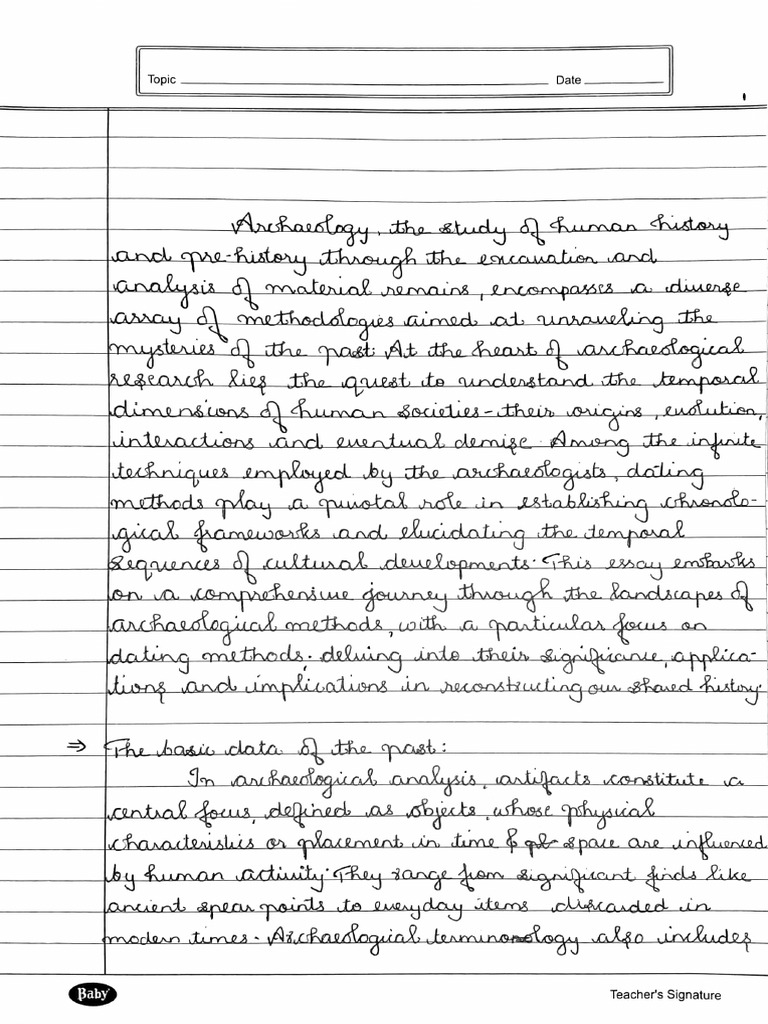 Topic Date
Archaeology, the study of human history
and pre-history through the excavation and
analysis of material remains, encompasses a diverse
array of methodologies aimed at unraveling the
mysteries of the past. At the heart of archaeological
research lies the quest to understand the temporal
dimensions of human societies - their origins, evolution,
interactions and eventual demise. Among the infinite
techniques employed by the archaeologists, dating
methods play a pivotal role in establishing chronolo-
gical frameworks and elucidating the temporal
sequences of cultural developments. This essay embarks
on a comprehensive journey through the landscapes of
archaeological methods, with a particular focus on
dating methods; delving into their significance, applica-
tions and implications in reconstructing our shared history.
⇒ The basic data of the past:
In archaeological analysis, artifacts constitute a
central focus, defined as objects, whose physical
characteristics or placement in time & space are influenced
by human activity. They range from significant finds like
ancient spear points to everyday items discarded in
modern times. Archaeological terminology also includes
Baby Teacher's Signature